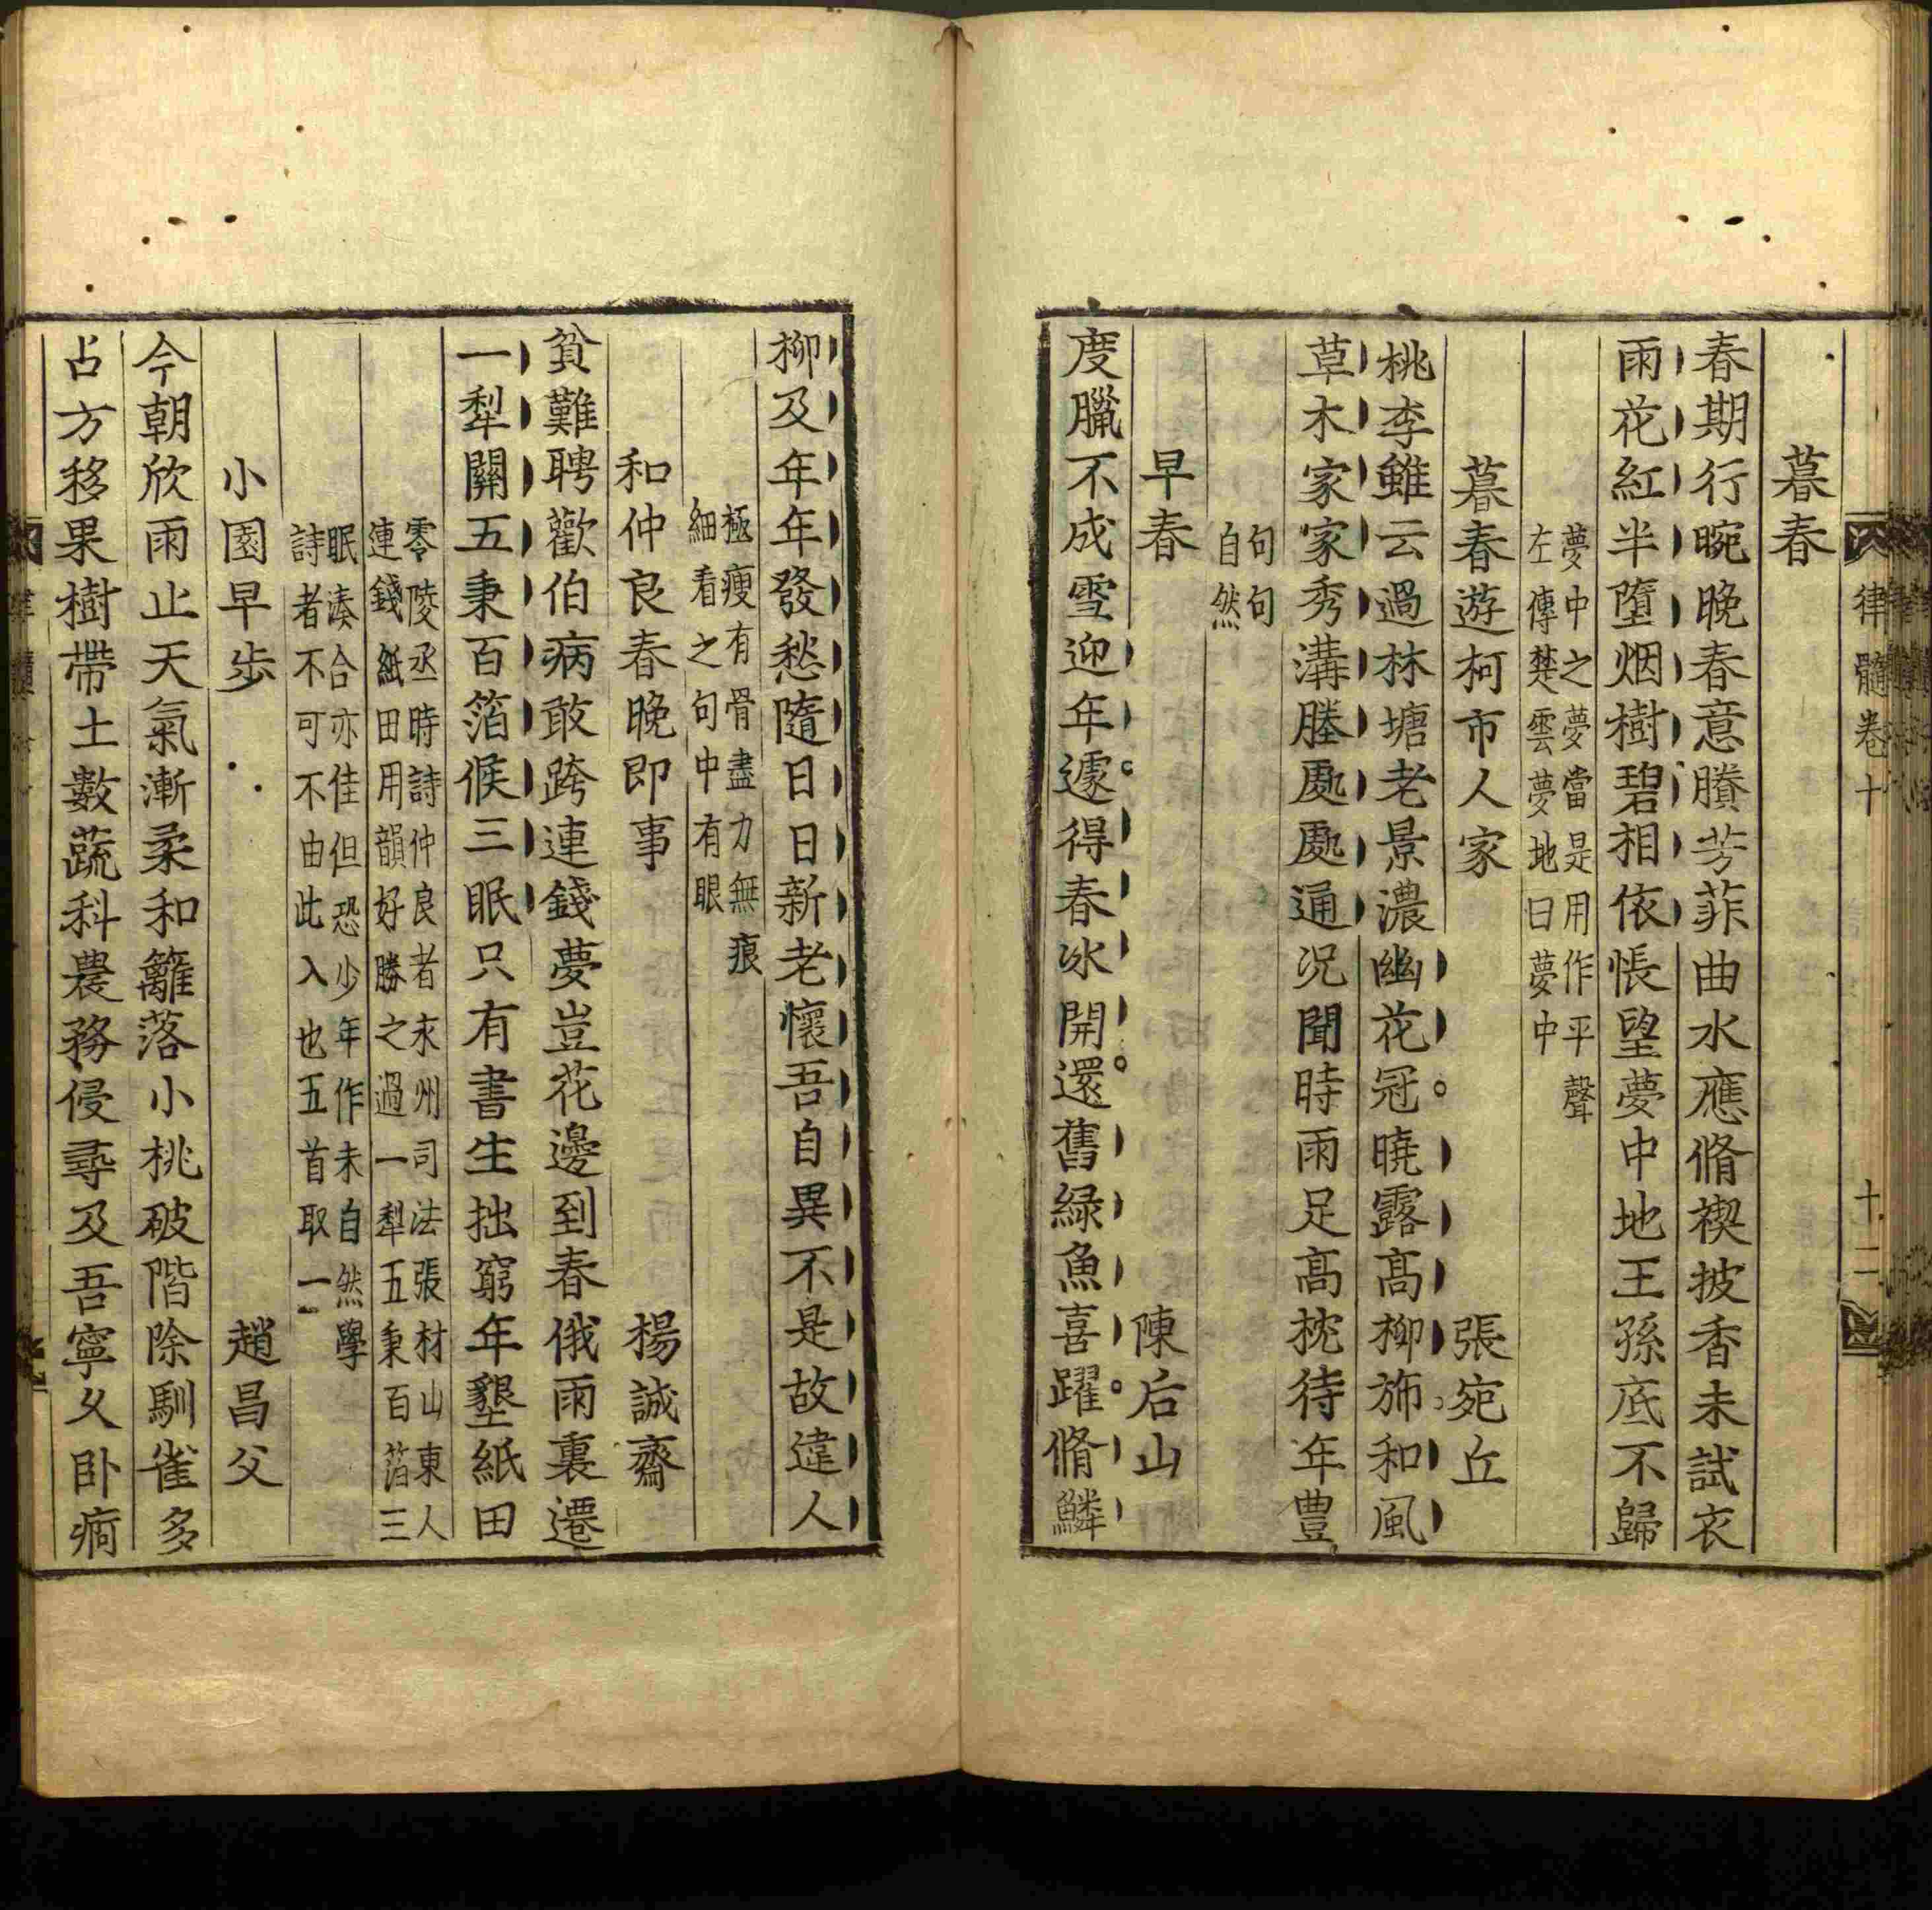 律髓卷十
十二
暮春
春期行晼晚春意賸芳菲曲水應脩禊披香未試衣
雨花紅半墮烟樹碧相依悵望夢中地王孫底不歸
夢中之夢當是用作平聲
左傳楚雲夢地曰夢中
暮春遊柯市人家
張宛丘
桃李雖云過林塘老景濃幽花冠曉露高柳斾和風
草木家家秀溝塍處處通况聞時雨足高枕待年豊
句句
自然
早春
陳后山
度臘不成雪迎年遽得春冰開還舊緑魚喜躍脩鱗
柳及年年發愁隨日日新老懷吾自異不是故違人
極瘦有骨盡力無痕
細看之句中有眼
和仲良春晚即事
楊誠齋
貧難聘歡伯病敢跨連錢夢豈花邊到春俄雨裏遷
一犁關五秉百箔候三眠只有書生拙窮年墾紙田
零陵丞時詩仲良者永州司法張材山東人
連錢紙田用韻好勝之過一犁五秉百箔三
眠湊合亦佳但恐少年作未自然學
詩者不可不由此入也五首取一
小園早步
趙昌父
今朝欣雨止天氣漸柔和籬落小桃破階除馴雀多
占方移果樹帶土數蔬科農務侵尋及吾寧久卧痾